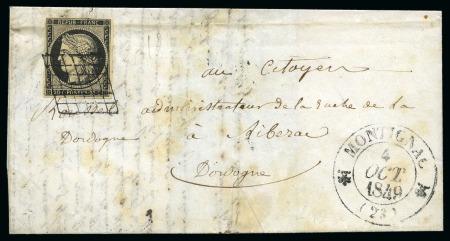 REPUB. FRANC.
au Citoyen
administrateur de la ruche de la
Dordogne
à Ribérac
Dordogne
MONTIGNAC
4
OCT
1849
(23)